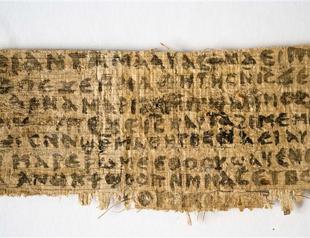 ⲁⲛ ⲧⲁⲙⲁⲁⲩ ⲁⲥϯ
ⲡⲉϫⲉ ⲙⲙⲁⲑⲏⲧⲏⲥ ⲛⲓⲥ ϫⲉ
ⲁⲣⲛⲁ ⲙⲁⲣⲓⲁⲙ ⲙⲡϣⲁ ⲙⲙⲟⲥ
ⲡⲉϫⲉ ⲓⲥ ⲛⲁⲩ ⲧⲁϩⲓⲙⲉ ⲙⲛ
ⲥⲛⲁϣⲣⲙⲁⲑⲏⲧⲏⲥ ⲛⲁⲉⲓ ⲁⲩⲱ
ⲙⲁⲣⲉⲣⲱⲙⲉ ⲉⲑⲟⲟⲩ ϣⲁϥⲉ ⲛⲉ
ⲁⲛⲟⲕ ϯϣⲟⲟⲡ ⲛⲙⲙⲁⲥ ⲉⲧⲃⲉ